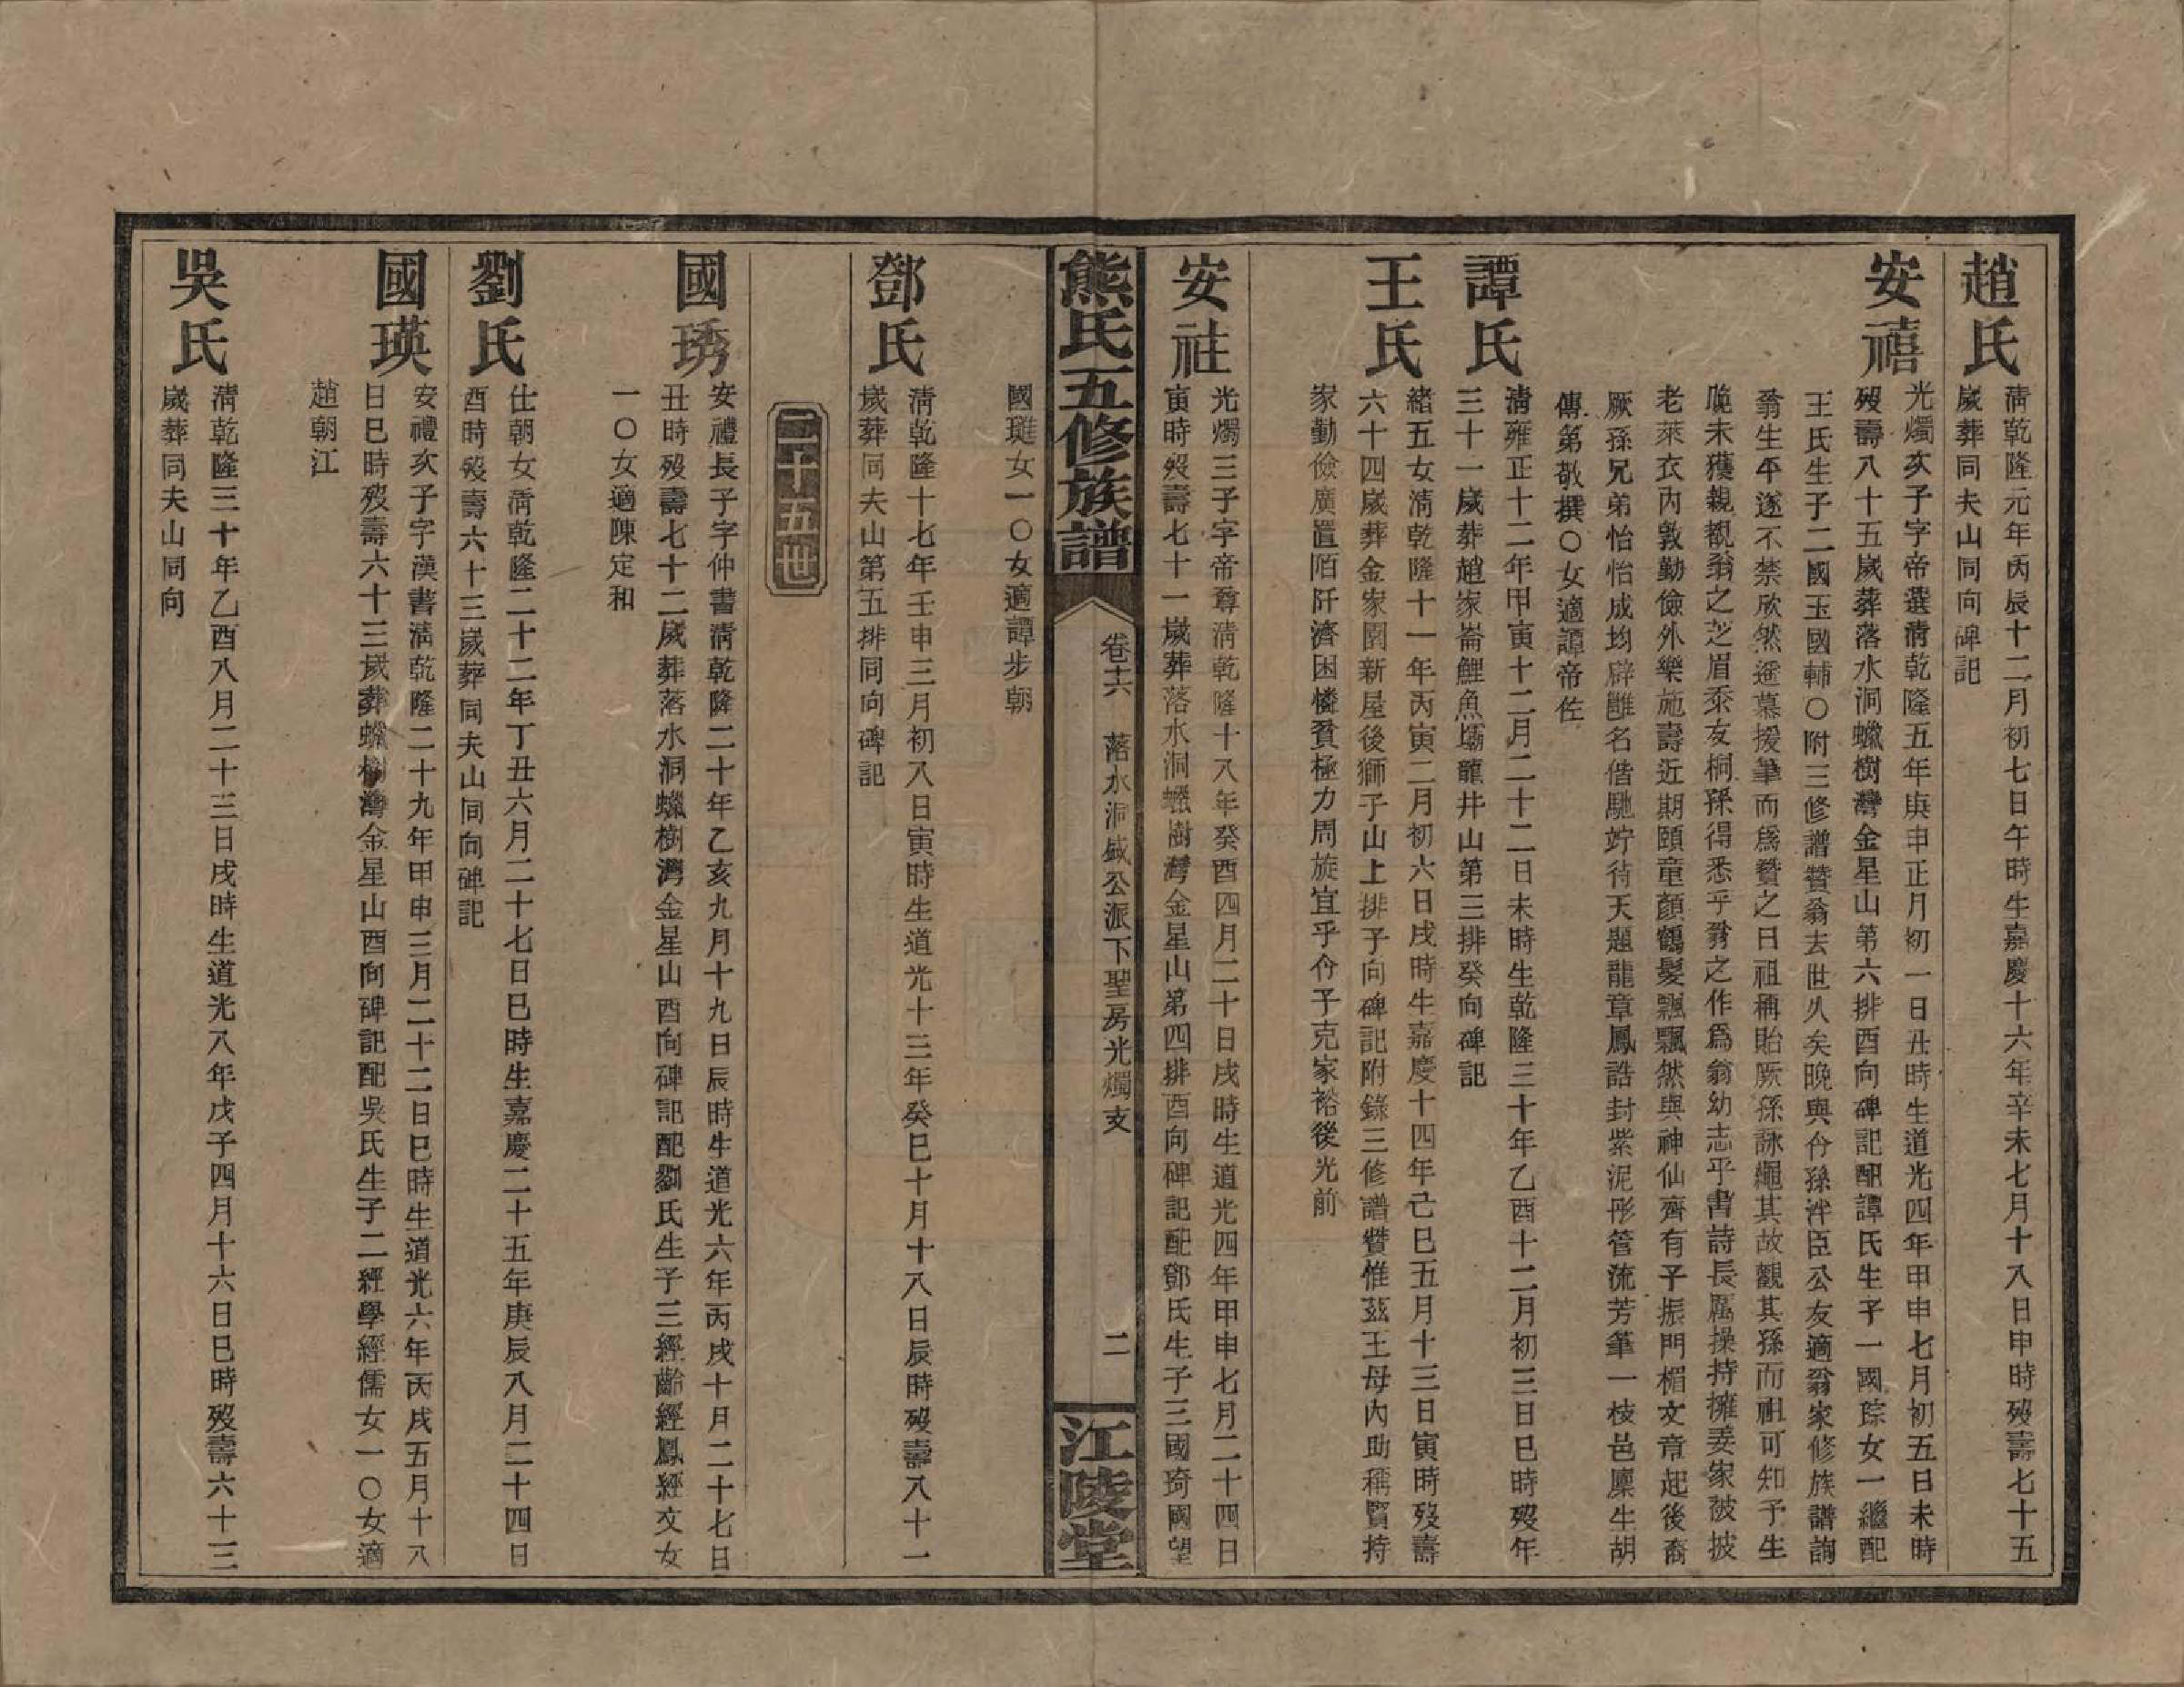 趙氏
清乾隆元年丙辰十二月初七日午時生嘉慶十六年辛未七月十八日申時歿壽七十五
歲葬同夫山同向碑記
安禧
光燭次子字帝選清乾隆五年庚申正月初一日丑時生道光四年甲申七月初五日未時
歿壽八十五歲葬落水洞蠟樹灣金星山第六排酉向碑記配譚氏生子一國琮女一繼配
王氏生子二國玉國輔〇附三修譜贊翁去世久矣晚與令孫泮臣公友適翁家修族譜詢
翁生平遂不禁欣然遥慕援筆而爲贊之曰祖稱貽厥孫詠繩其故觀其孫而祖可知予生
晚未獲親覩翁之芝眉忝友桐孫得悉乎翁之作爲翁幼志乎書詩長厲操持擁姜家被披
老萊衣內敦勤儉外樂施壽近期頤童顏鶴髮飄飄然與神仙齊有子振門楣文章起後裔
厥孫兄弟怡怡成均辟雝名偕馳竚待天題龍章鳳誥封紫泥彤管流芳筆一枝邑廩生胡
傳第敬撰〇女適譚帝佐
譚氏
清雍正十二年甲寅十二月二十二日未時生乾隆三十年乙酉十二月初三日巳時歿年
三十一歲葬趙家崙鯉魚壩龍井山第三排癸向碑記
王氏
緒五女清乾隆十一年丙寅二月初六日戌時生嘉慶十四年己巳五月十三日寅時歿壽
六十四歲葬金家園新屋後獅子山上排子向碑記附錄三修譜贊惟茲王母內助稱賢持
家勤儉廣置陌阡濟困憐貧極力周旋宜乎令子克家裕後光前
安社
光燭三子字帝尊清乾隆十八年癸酉四月二十日戌時生道光四年甲申七月二十四日
寅時歿壽七十一歲葬落水洞蠟樹灣金星山第四排酉向碑記配鄧氏生子三國琦國望
熊氏五修族譜
卷十六
落水洞盛公派下聖房光燭支
二
江陵堂
國璡女一〇女適譚步朝
鄧氏
清乾隆十七年壬申三月初八日寅時生道光十三年癸巳十月十八日辰時歿壽八十一
歲葬同夫山第五排同向碑記
二十五世
國琇
安禮長子字仲書清乾隆二十年乙亥九月十九日辰時生道光六年丙戌十月二十七日
丑時歿壽七十二歲葬落水洞蠟樹灣金星山酉向碑記配劉氏生子三經齡經鳳經文女
一〇女適陳定和
劉氏
仕朝女清乾隆二十二年丁丑六月二十七日巳時生嘉慶二十五年庚辰八月二十四日
酉時歿壽六十三歲葬同夫山同向碑記
國瑛
安禮次子字漢書清乾隆二十九年甲申三月二十二日巳時生道光六年丙戌五月十八
日巳時歿壽六十三歲葬蠟樹灣金星山酉向碑記配吳氏生子二經學經儒女一〇女適
趙朝江
吳氏
清乾隆三十年乙酉八月二十三日戌時生道光八年戊子四月十六日巳時歿壽六十三
歲葬同夫山同向